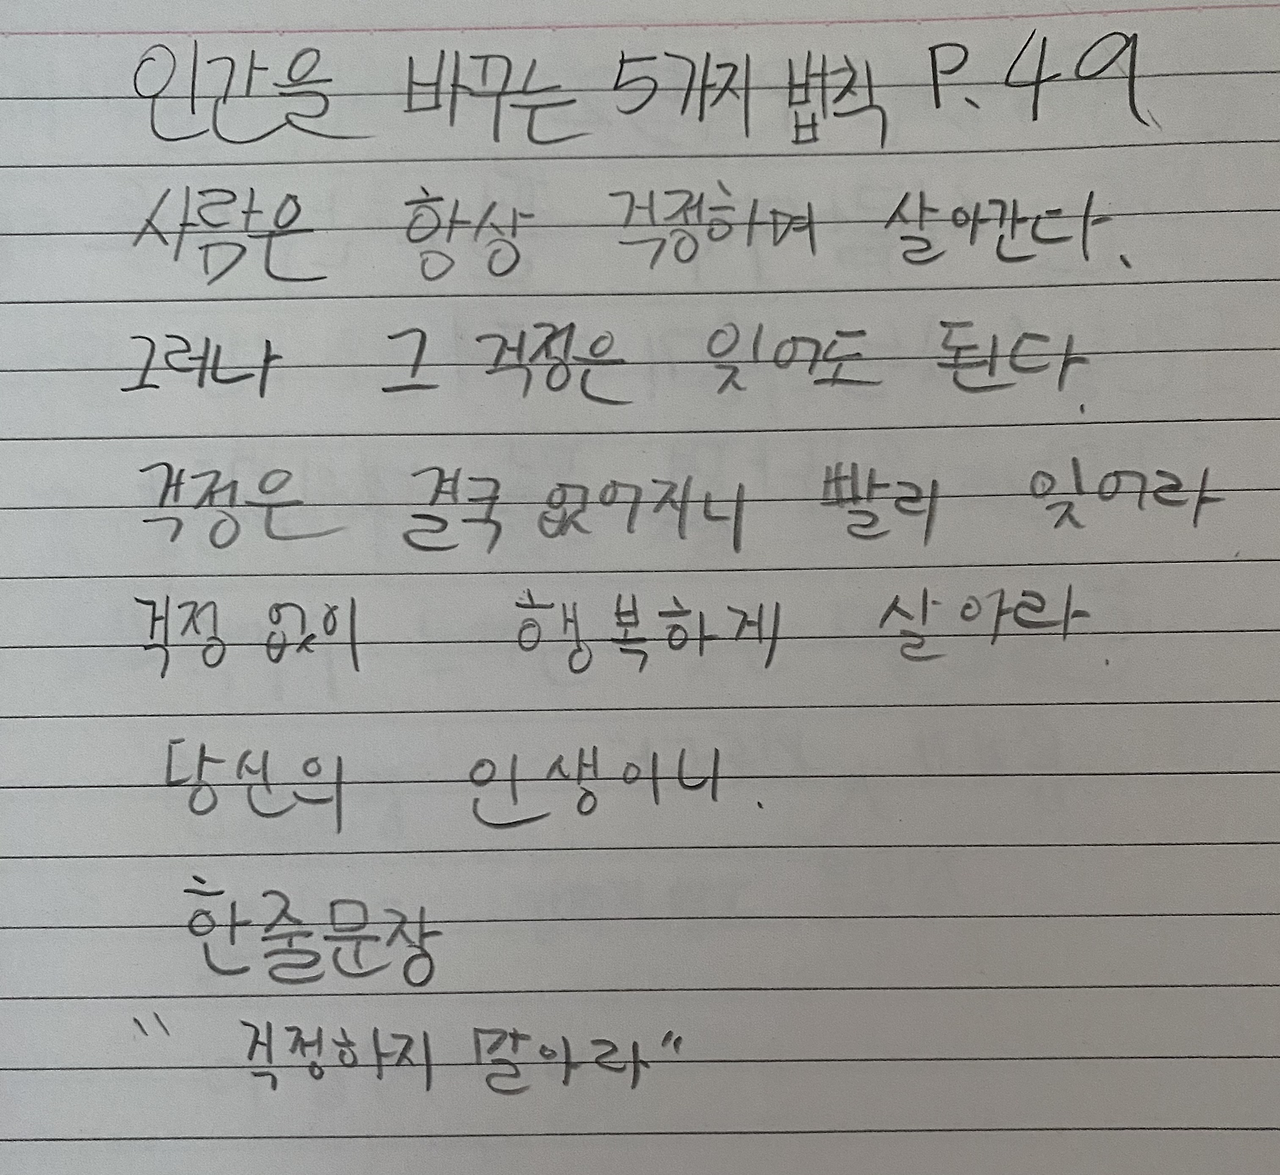 인간을 바꾸는 5가지 법칙 P.49
사람은 항상 걱정하며 살아간다.
그러나 그 걱정은 잊어도 된다.
걱정은 결국 없어지니 빨리 잊어라
걱정 없이 행복하게 살아라.
당신의 인생이니.
한줄문장
"걱정하지 말아라"